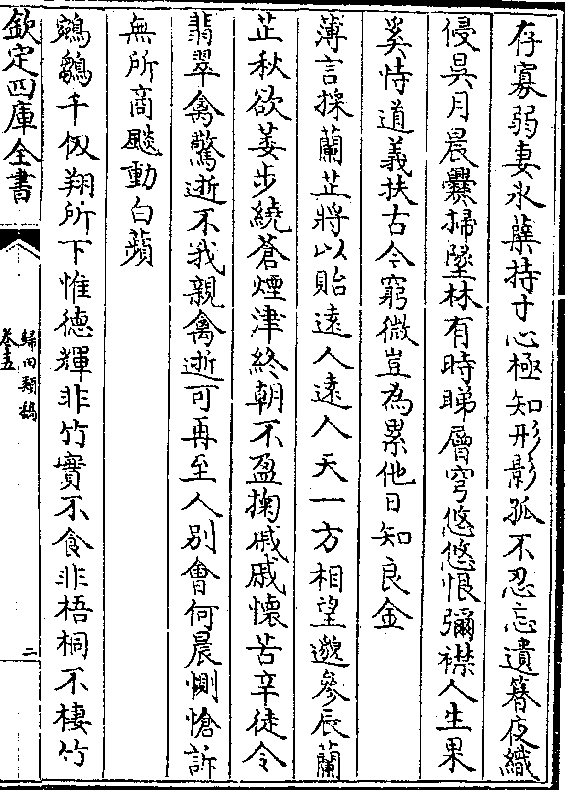 存寡弱妻冰蘗持寸心極知形影孤不忍忘遺簪夜織
侵昃月晨爨掃墜林有時睇層穹悠悠恨彌襟人生果
奚恃道義扶古今窮微豈為累他日知良金
薄言採蘭芷將以貽遠人遠人天一方相望邈參辰蘭
芷秋欲萎步繞蒼煙津終朝不盈掬戚戚懷苦辛徒令
翡翠禽驚逝不我親禽逝可再至人別會何晨惻愴訴
無所商颷動白蘋
鵷鶵千仭翔所下惟德輝非竹實不食非梧桐不棲竹
欽定四庫全書
歸田類稿
卷十五
二